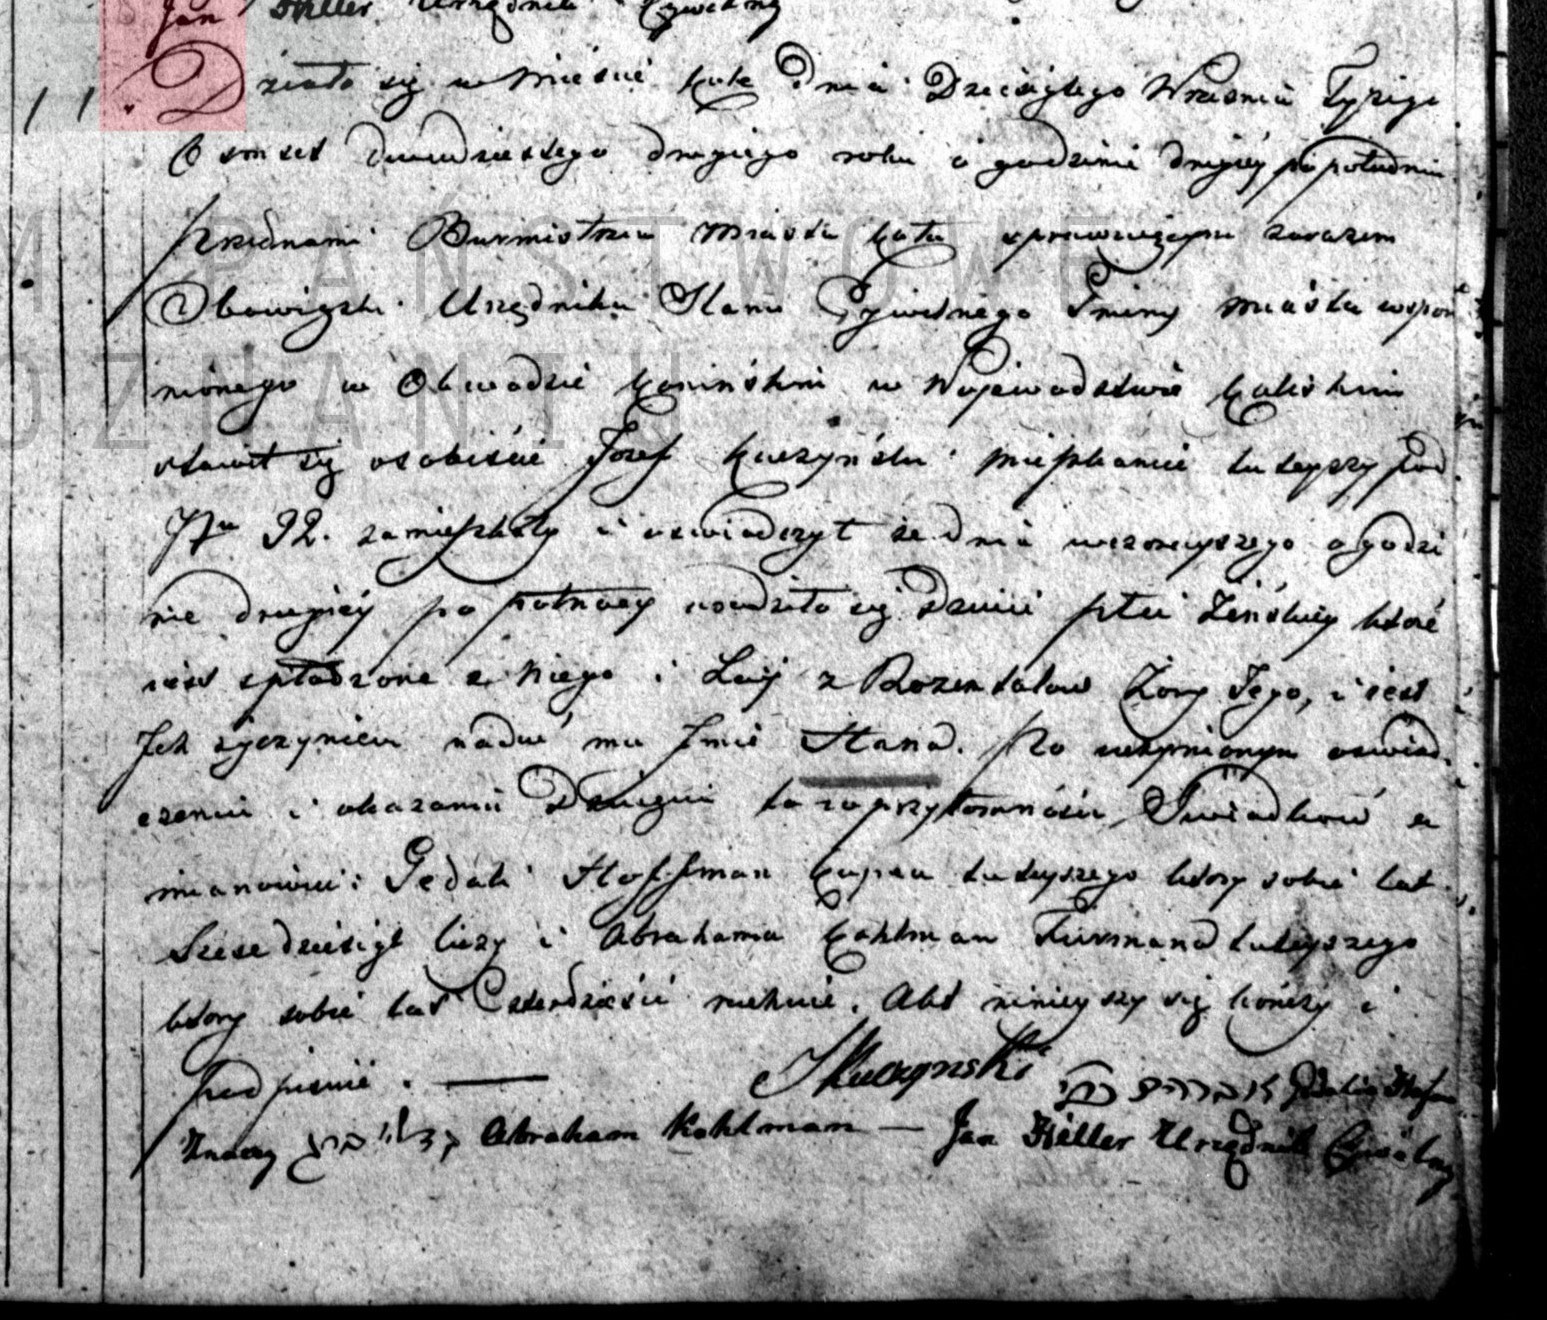 Jan Hiller Urzędnik Cywilny
11. Działo się w Mieście Kole Dnia Dziesiątego Września Tysiąc
Osmset dwudziestego drugiego roku o godzinie drugiey po południu
Przednami Burmistrzem Miasta Koła sprawuiącym zarazem
Obowiązki Urzędnika Stanu Cywilnego Gminy Miasta wspom
nionego w Obwodzie Konińskim w Wojewodztwie Kaliskim
stawił się osobiście Jozef Kuczyński tuteyszy pod
Nrm 92. zamieszkały i oswiadczył że dnia wczorayszego o godzi
nie drugiey po połnocy urodziło się Dziecie płci Żeńskiey ktore
iest spłodzone z Niego i Laji z Rozentalow Żony Jego, i iest
Jch życzeniem nadać mu Jmie Hana. Po uczynionym oswiad
czeniu i okazaniu Dziecięcia w przytomności Swiadkow a
mianowicie: Gedali Hoffman Kupca tuteyszego ktory sobie lat
Szescdziesiąt liczy i Abrahama Kohlman Furmana tuteyszego
ktory sobie lat Czterdzieści rachuie. Akt ninieyszy się kończy i
podpisuie. — JKuczynski אברהם
Znaczy Abraham Kohlman — Jan Hiller Urzędnik Cywilny
M PAŃSTWOWE
OZNANIU